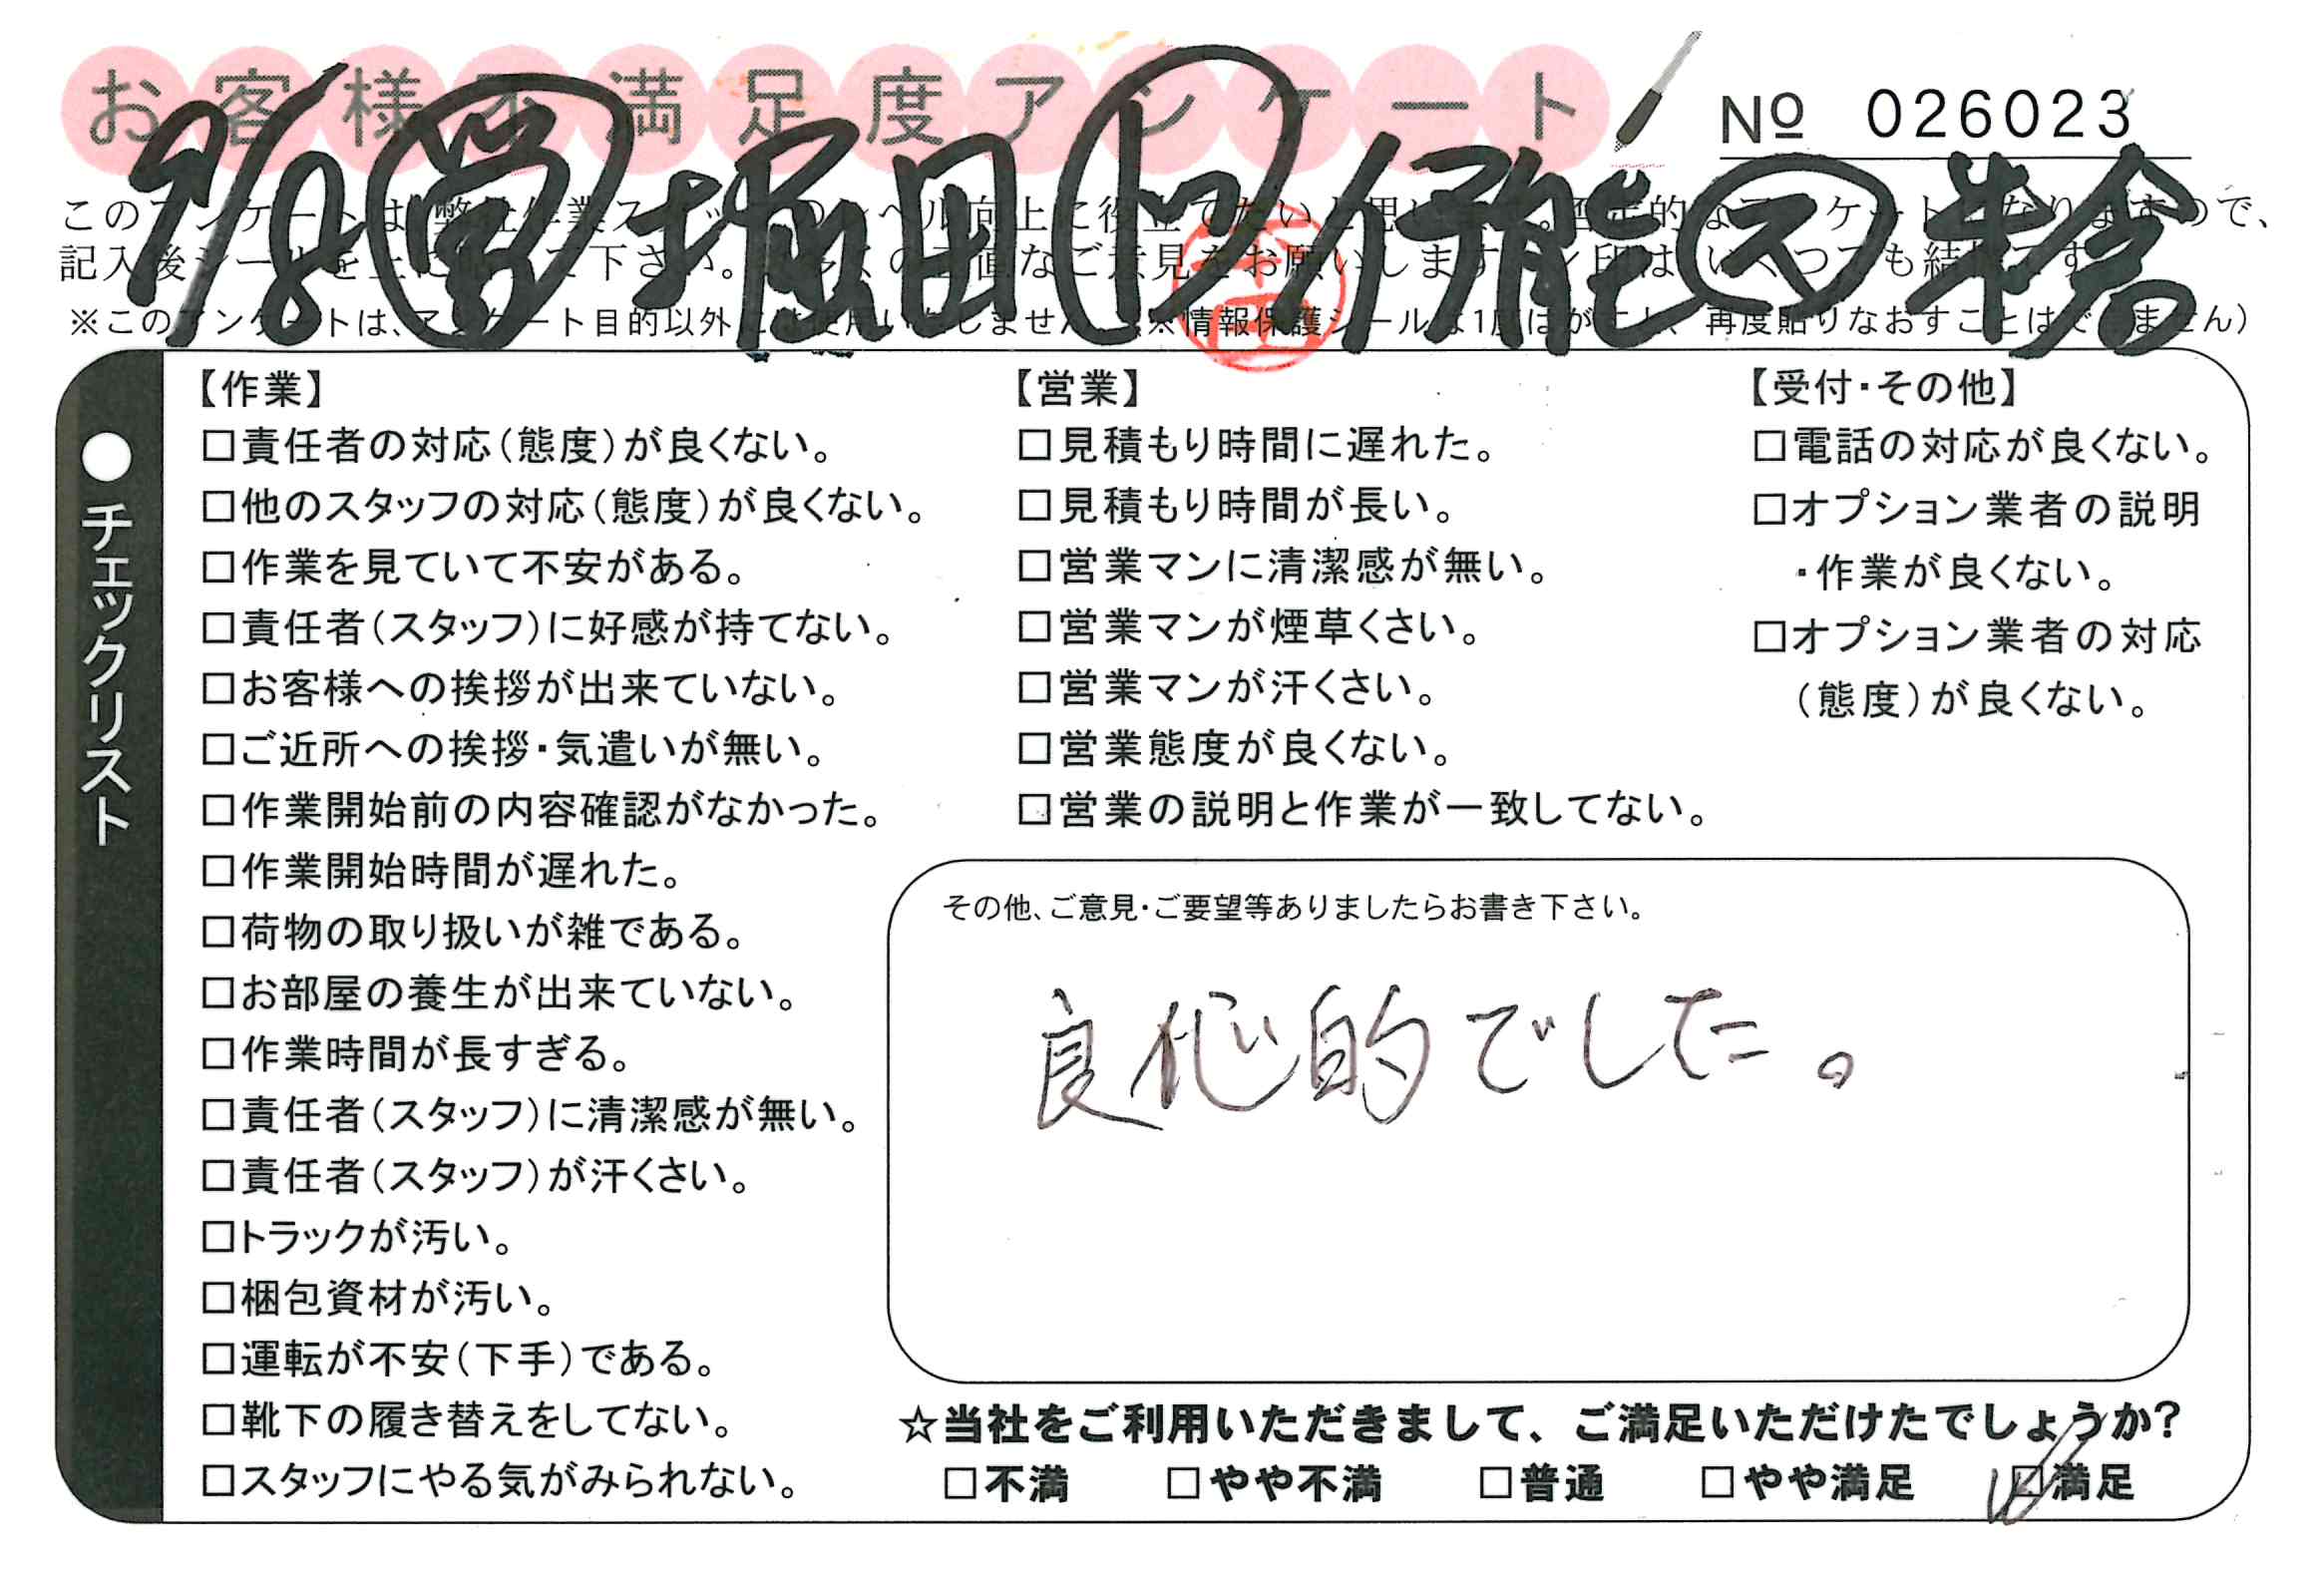 お客様不満足度アンケート
№ 026023
9/8 営 堀田 ト 伊能 ス 米倉
記入後シールを上に
※このアンケートは、アンケート目的以外には使用いたしません
※情報保護シールは1度はがすと、再度貼りなおすことはできません）
●チェックリスト
【作業】
□責任者の対応（態度）が良くない。
□他のスタッフの対応（態度）が良くない。
□作業を見ていて不安がある。
□責任者（スタッフ）に好感が持てない。
□お客様への挨拶が出来ていない。
□ご近所への挨拶・気遣いが無い。
□作業開始前の内容確認がなかった。
□作業開始時間が遅れた。
□荷物の取り扱いが雑である。
□お部屋の養生が出来ていない。
□作業時間が長すぎる。
□責任者（スタッフ）に清潔感が無い。
□責任者（スタッフ）が汗くさい。
□トラックが汚い。
□梱包資材が汚い。
□運転が不安（下手）である。
□靴下の履き替えをしてない。
□スタッフにやる気がみられない。
【営業】
□見積もり時間に遅れた。
□見積もり時間が長い。
□営業マンに清潔感が無い。
□営業マンが煙草くさい。
□営業マンが汗くさい。
□営業態度が良くない。
□営業の説明と作業が一致してない。
【受付・その他】
□電話の対応が良くない。
□オプション業者の説明
・作業が良くない。
□オプション業者の対応
（態度）が良くない。
その他、ご意見・ご要望等ありましたらお書き下さい。
良心的でした。
☆当社をご利用いただきまして、ご満足いただけたでしょうか？
□不満 □やや不満 □普通 □やや満足 ☑満足